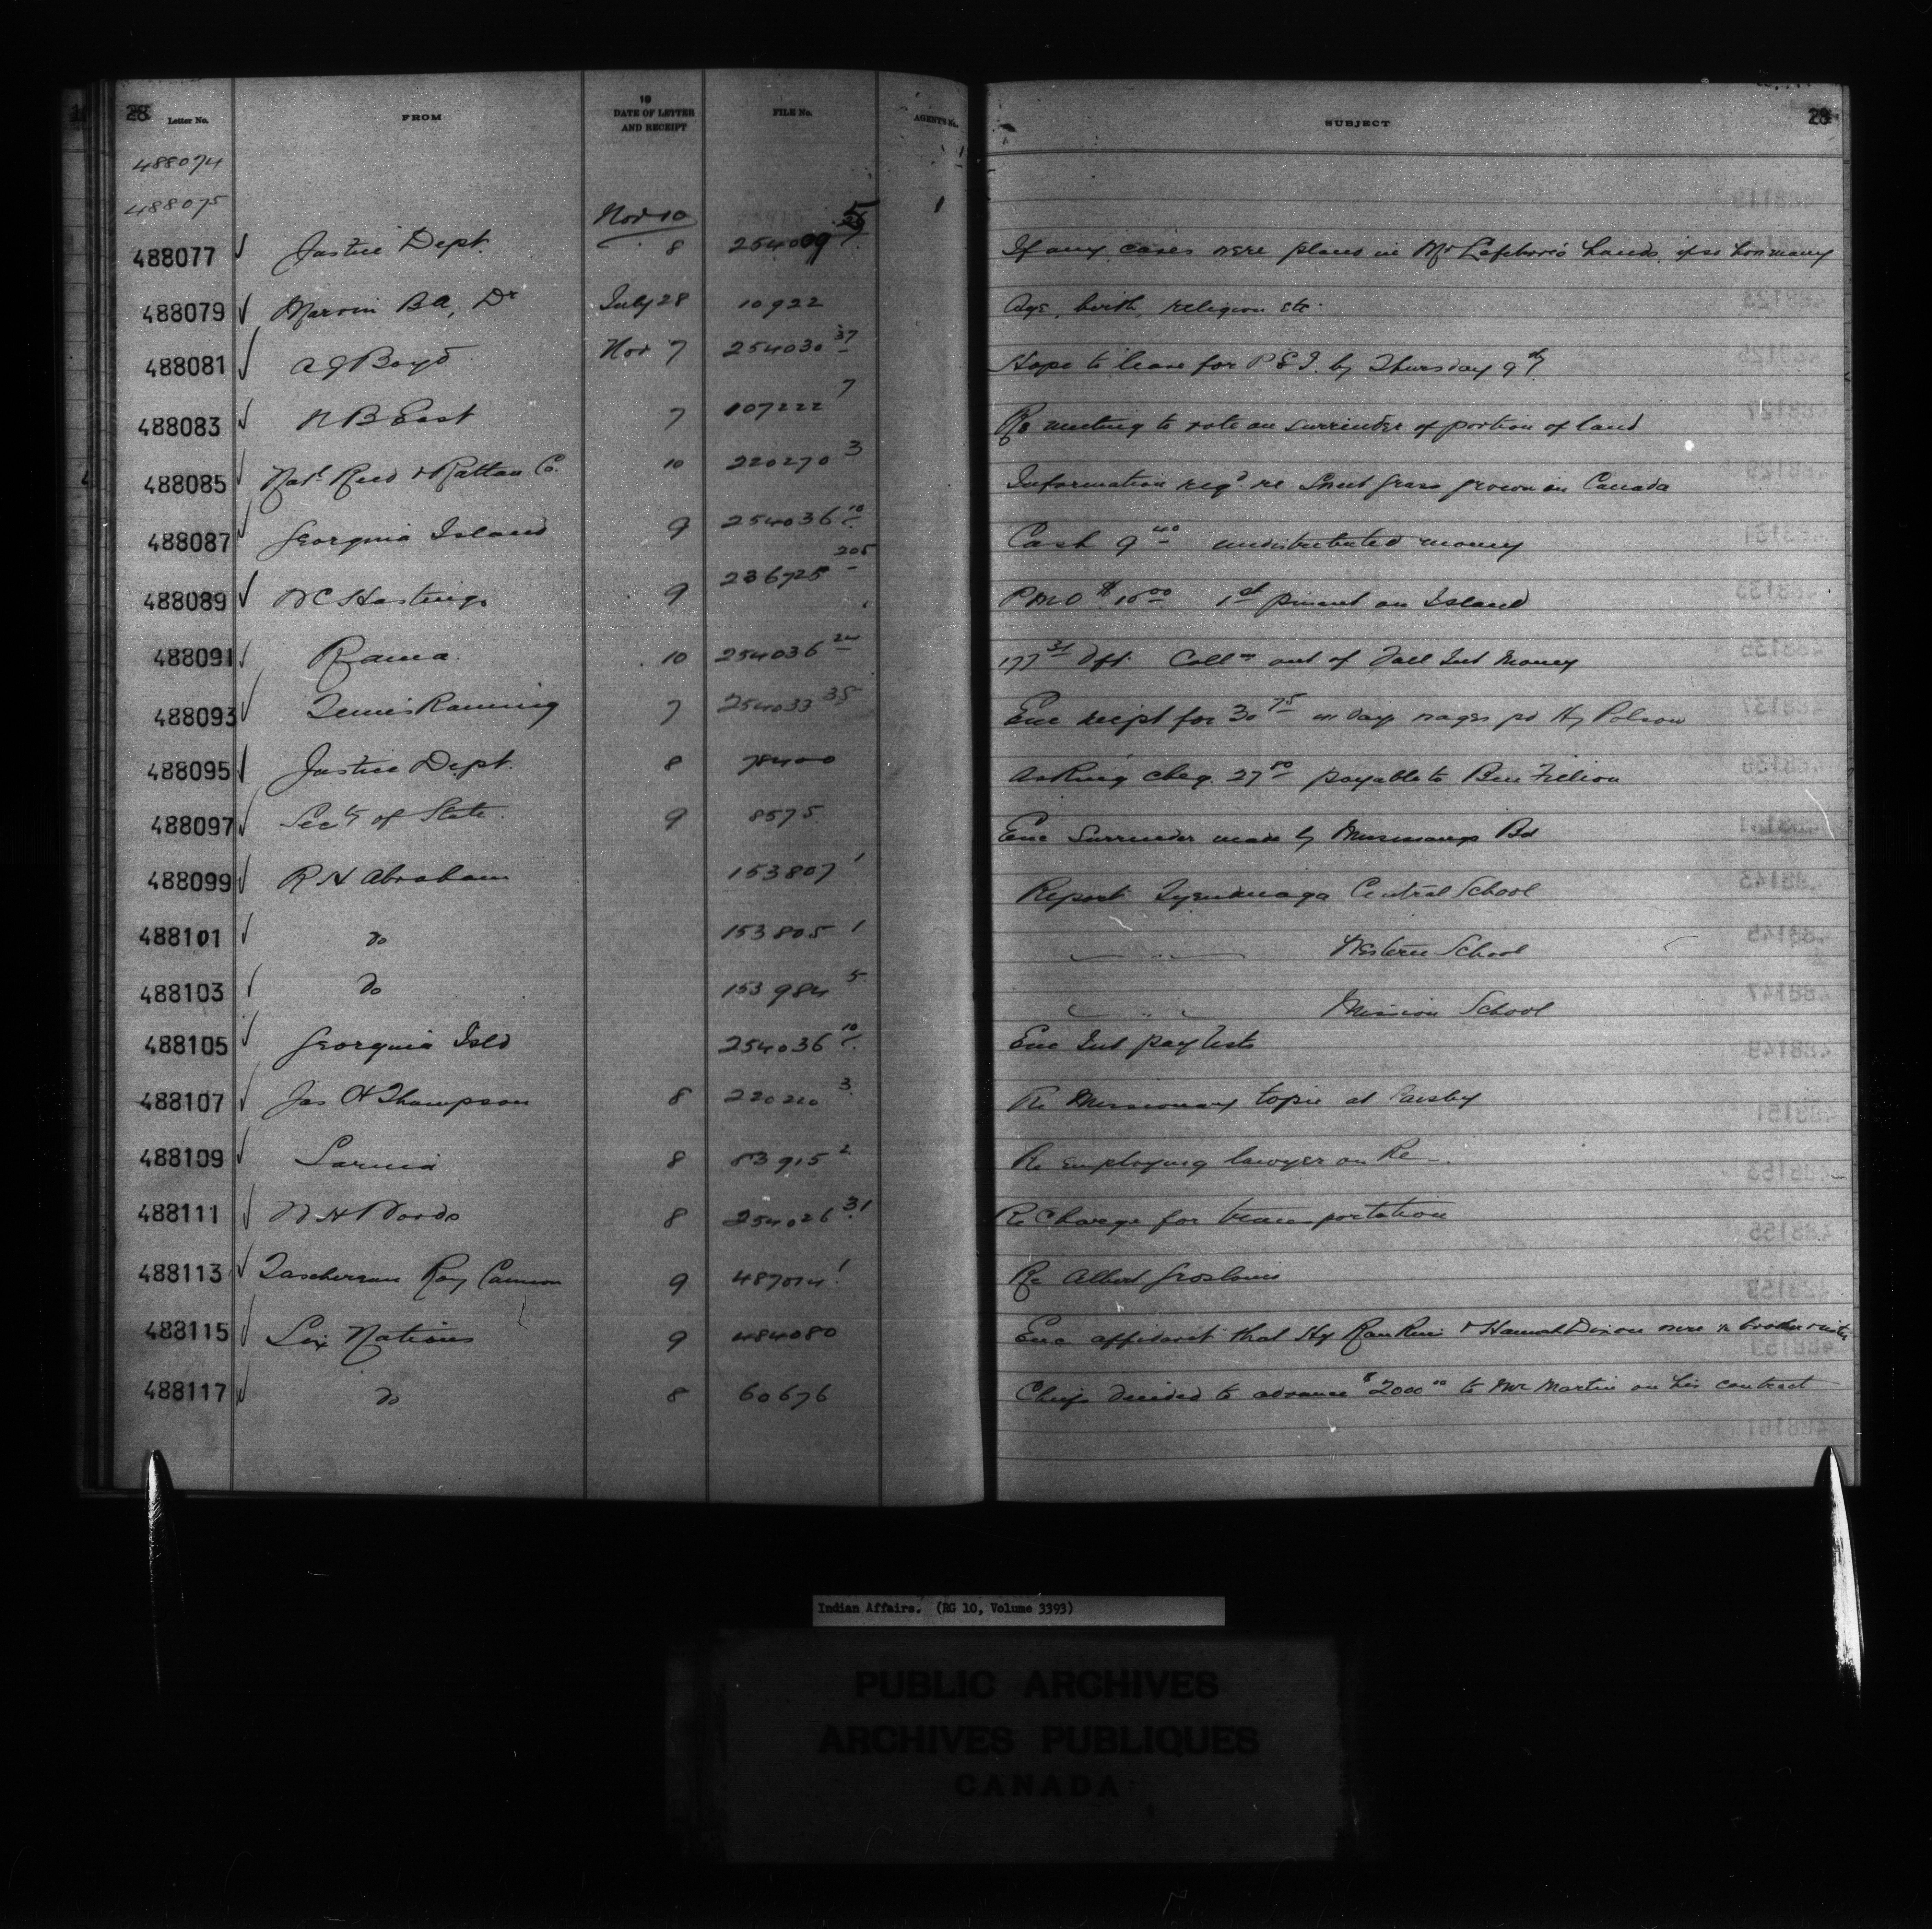 28 Letter No. FROM 19 DATE OF LETTER AND RECEIPT FILE No. AGENT'S No. SUBJECT 28
488074
488075
Nov 10
488077 Justice Dept. 8 254009 If any cases were placed in Mr Lefebvre's hands, if so how many
488079 Marvin BA, Dr July 28 10922 Age, birth, religion etc.
488081 A J Boyd Nov 7 254030 37 Hope to leave for P E I. by Thursday 9th
488083 N B East 7 107222 7 Re meeting to vote on surrender of portion of land
488085 Natl Reed & Rattan Co. 10 220270 3 Information reqd. re Sweet Grass grown in Canada
488087 Georgina Island 9 254036 10 Cash 9 40 undistributed money
488089 W C Hastings 9 236725 205 P M O $10 00 1st payment on Island
488091 Rama. 10 254036 24 177 31 Dft. Colln out of Fall Int Money
488093 Temis Raming 7 254033 35 Enc recipt for 30 75 in days wages pd Hy Polson
488095 Justice Dept. 8 78400 Asking cheq. 27 80 payable to Ben Fillion
488097 Secty of State. 9 8575 Enc Surrender made by Bd
488099 R H Abraham 153807 1 Report Tyendinaga Central School
488101 do 153805 1 " Western School
488103 do 153984 5 " Mission School
488105 Georgina Isld 254036 10 Enc Int pay lists
488107 Jas H Thompson 8 220220 3 Re Missionary topic at
488109 Sarnia 8 83915 2 Re employing lawyer on Re
488111 W H Woods 8 254026 31 Re Charge for transportation
488113 Taschereau Roy Cannon 9 487014 1 Re Albert Groslouis
488115 Six Nations 9 484080 Enc affidavit that Hy & Hannah Dixon were brother sister
488117 do 8 60676 Chiefs decided to advance $2000 00 to Mr Martin on his contract
Indian Affairs. (RG 10, Volume 3393)
PUBLIC ARCHIVES
ARCHIVES PUBLIQUES
CANADA